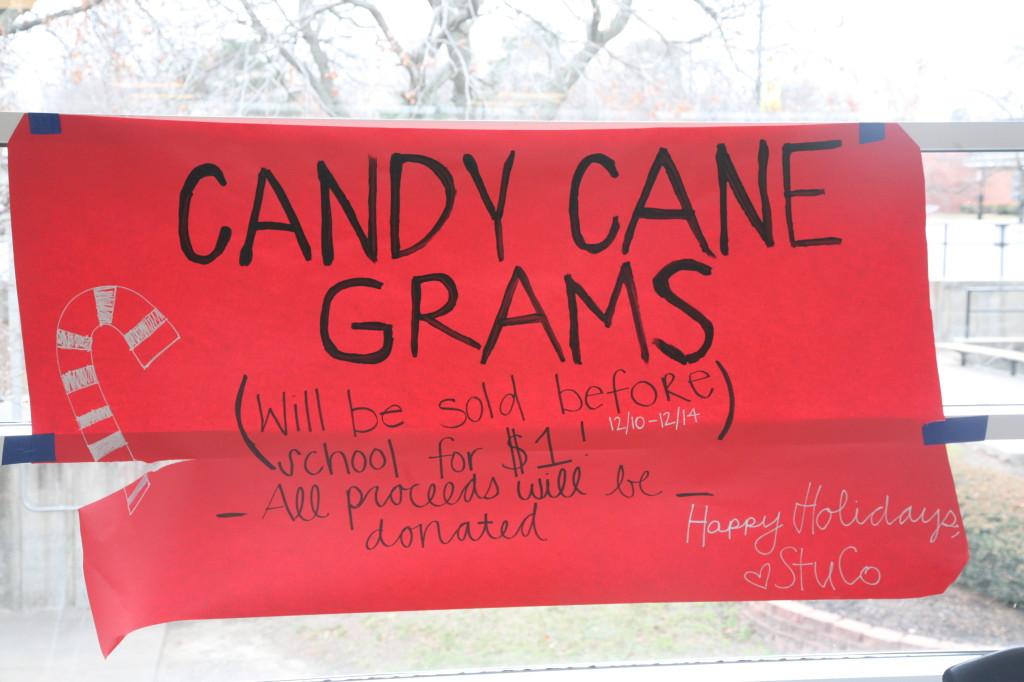 CANDY CANE
GRAMS
(Will be sold before
12/10-12/14)
school for $1!
- All proceeds will be -
donated
Happy Holidays,
♡ StuCo